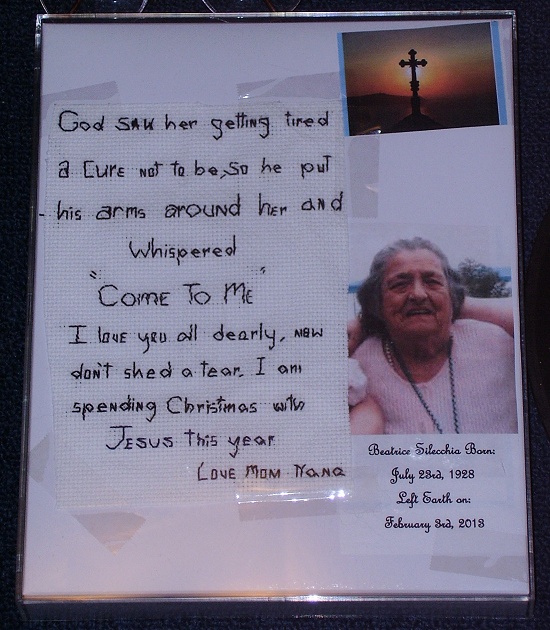 God SAW her getting tired
a Cure NOT To be, so he put
- his arms around her and
Whispered
"COME TO ME"
I love you all dearly, NOW
don't shed a tear. I am
spending Christmas with
JESUS This year
LOVE MOM NaNa
Beatrice Silecchia Born:
July 23rd, 1928
Left Earth on:
February 3rd, 2013